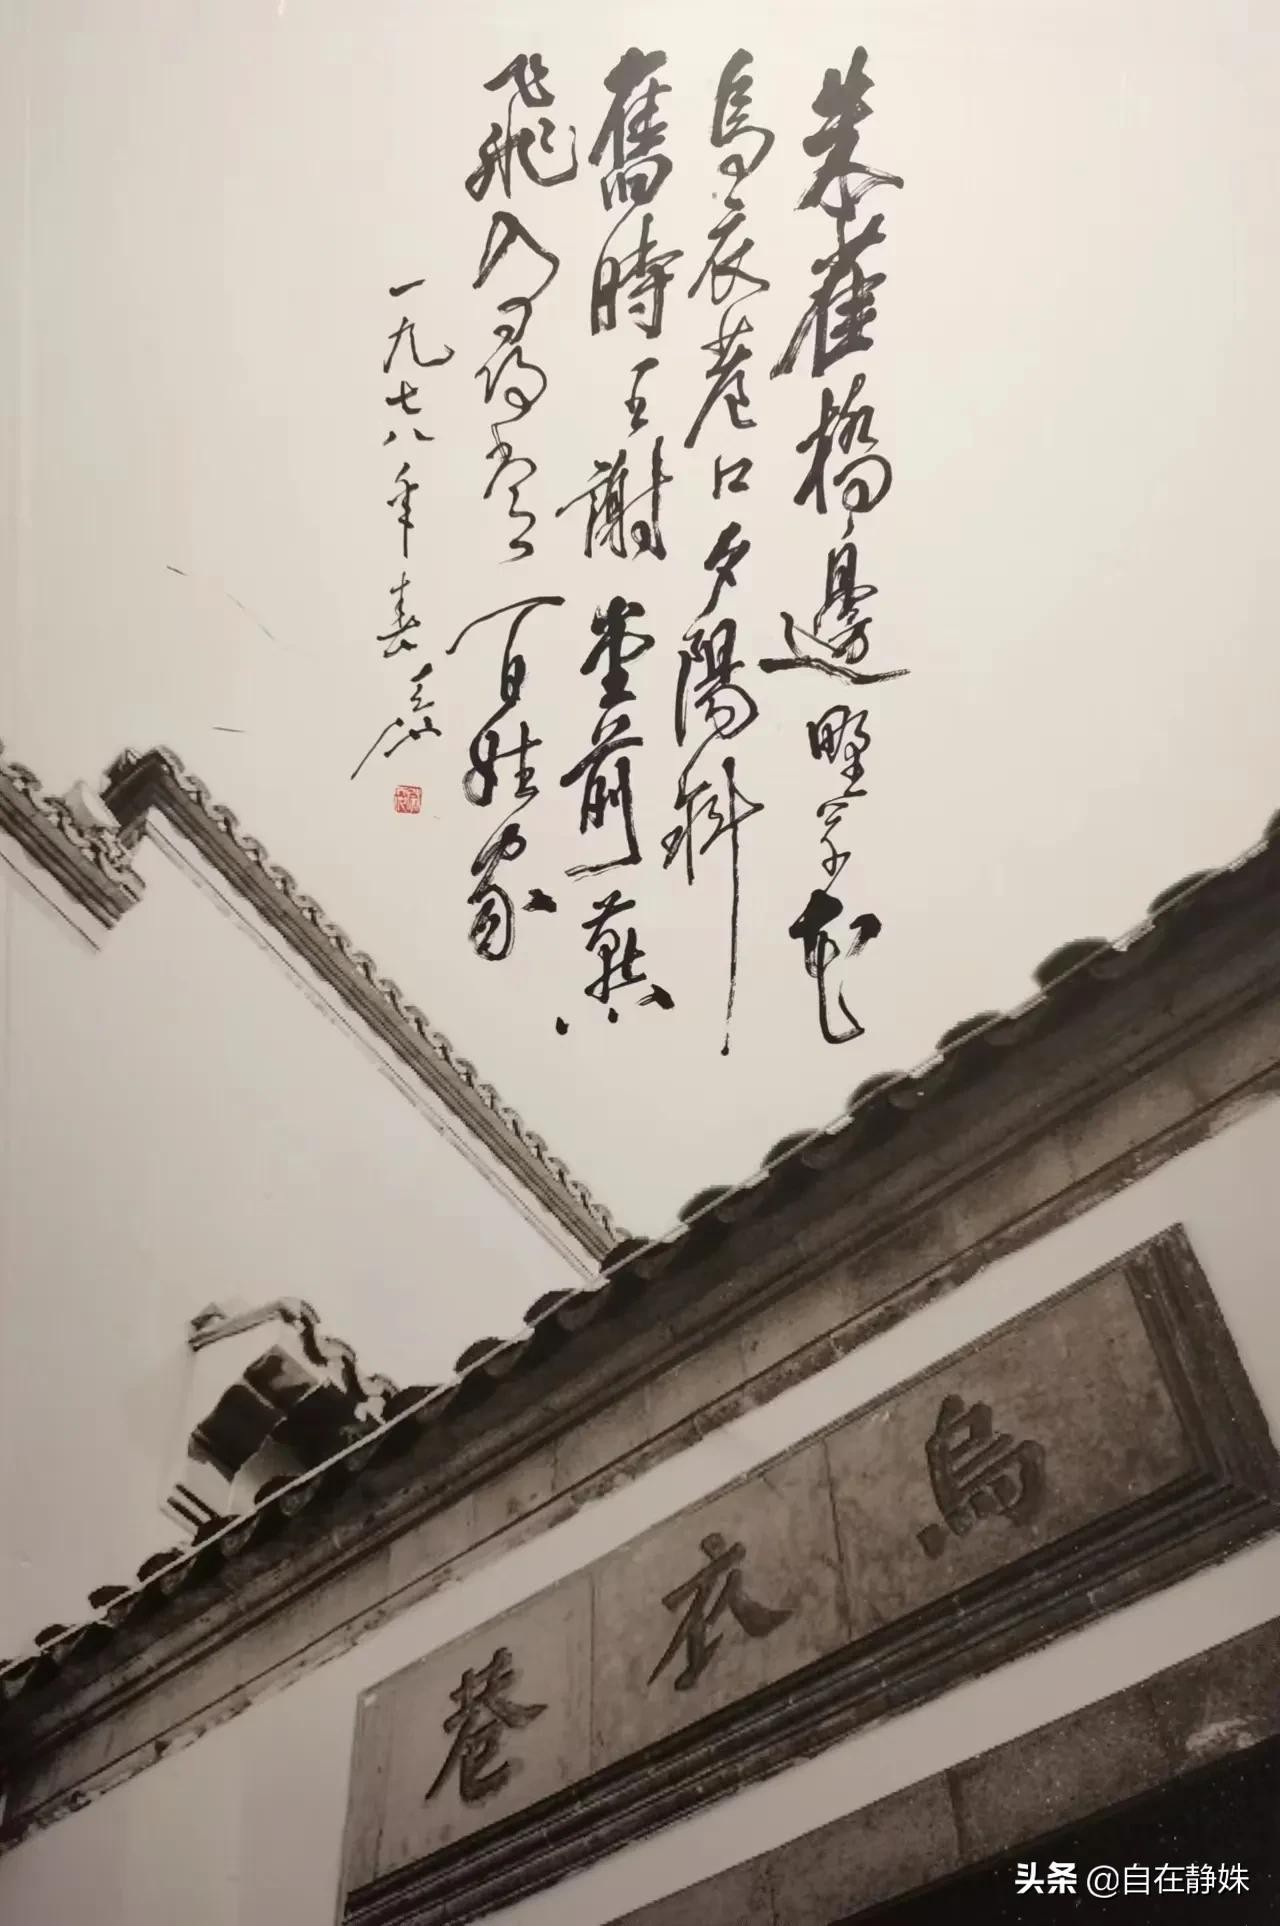 朱雀橋邊野草花
烏衣巷口夕陽斜
舊時王謝堂前燕
飛入尋常百姓家
一九七八年春
烏衣巷
头条 @自在静姝